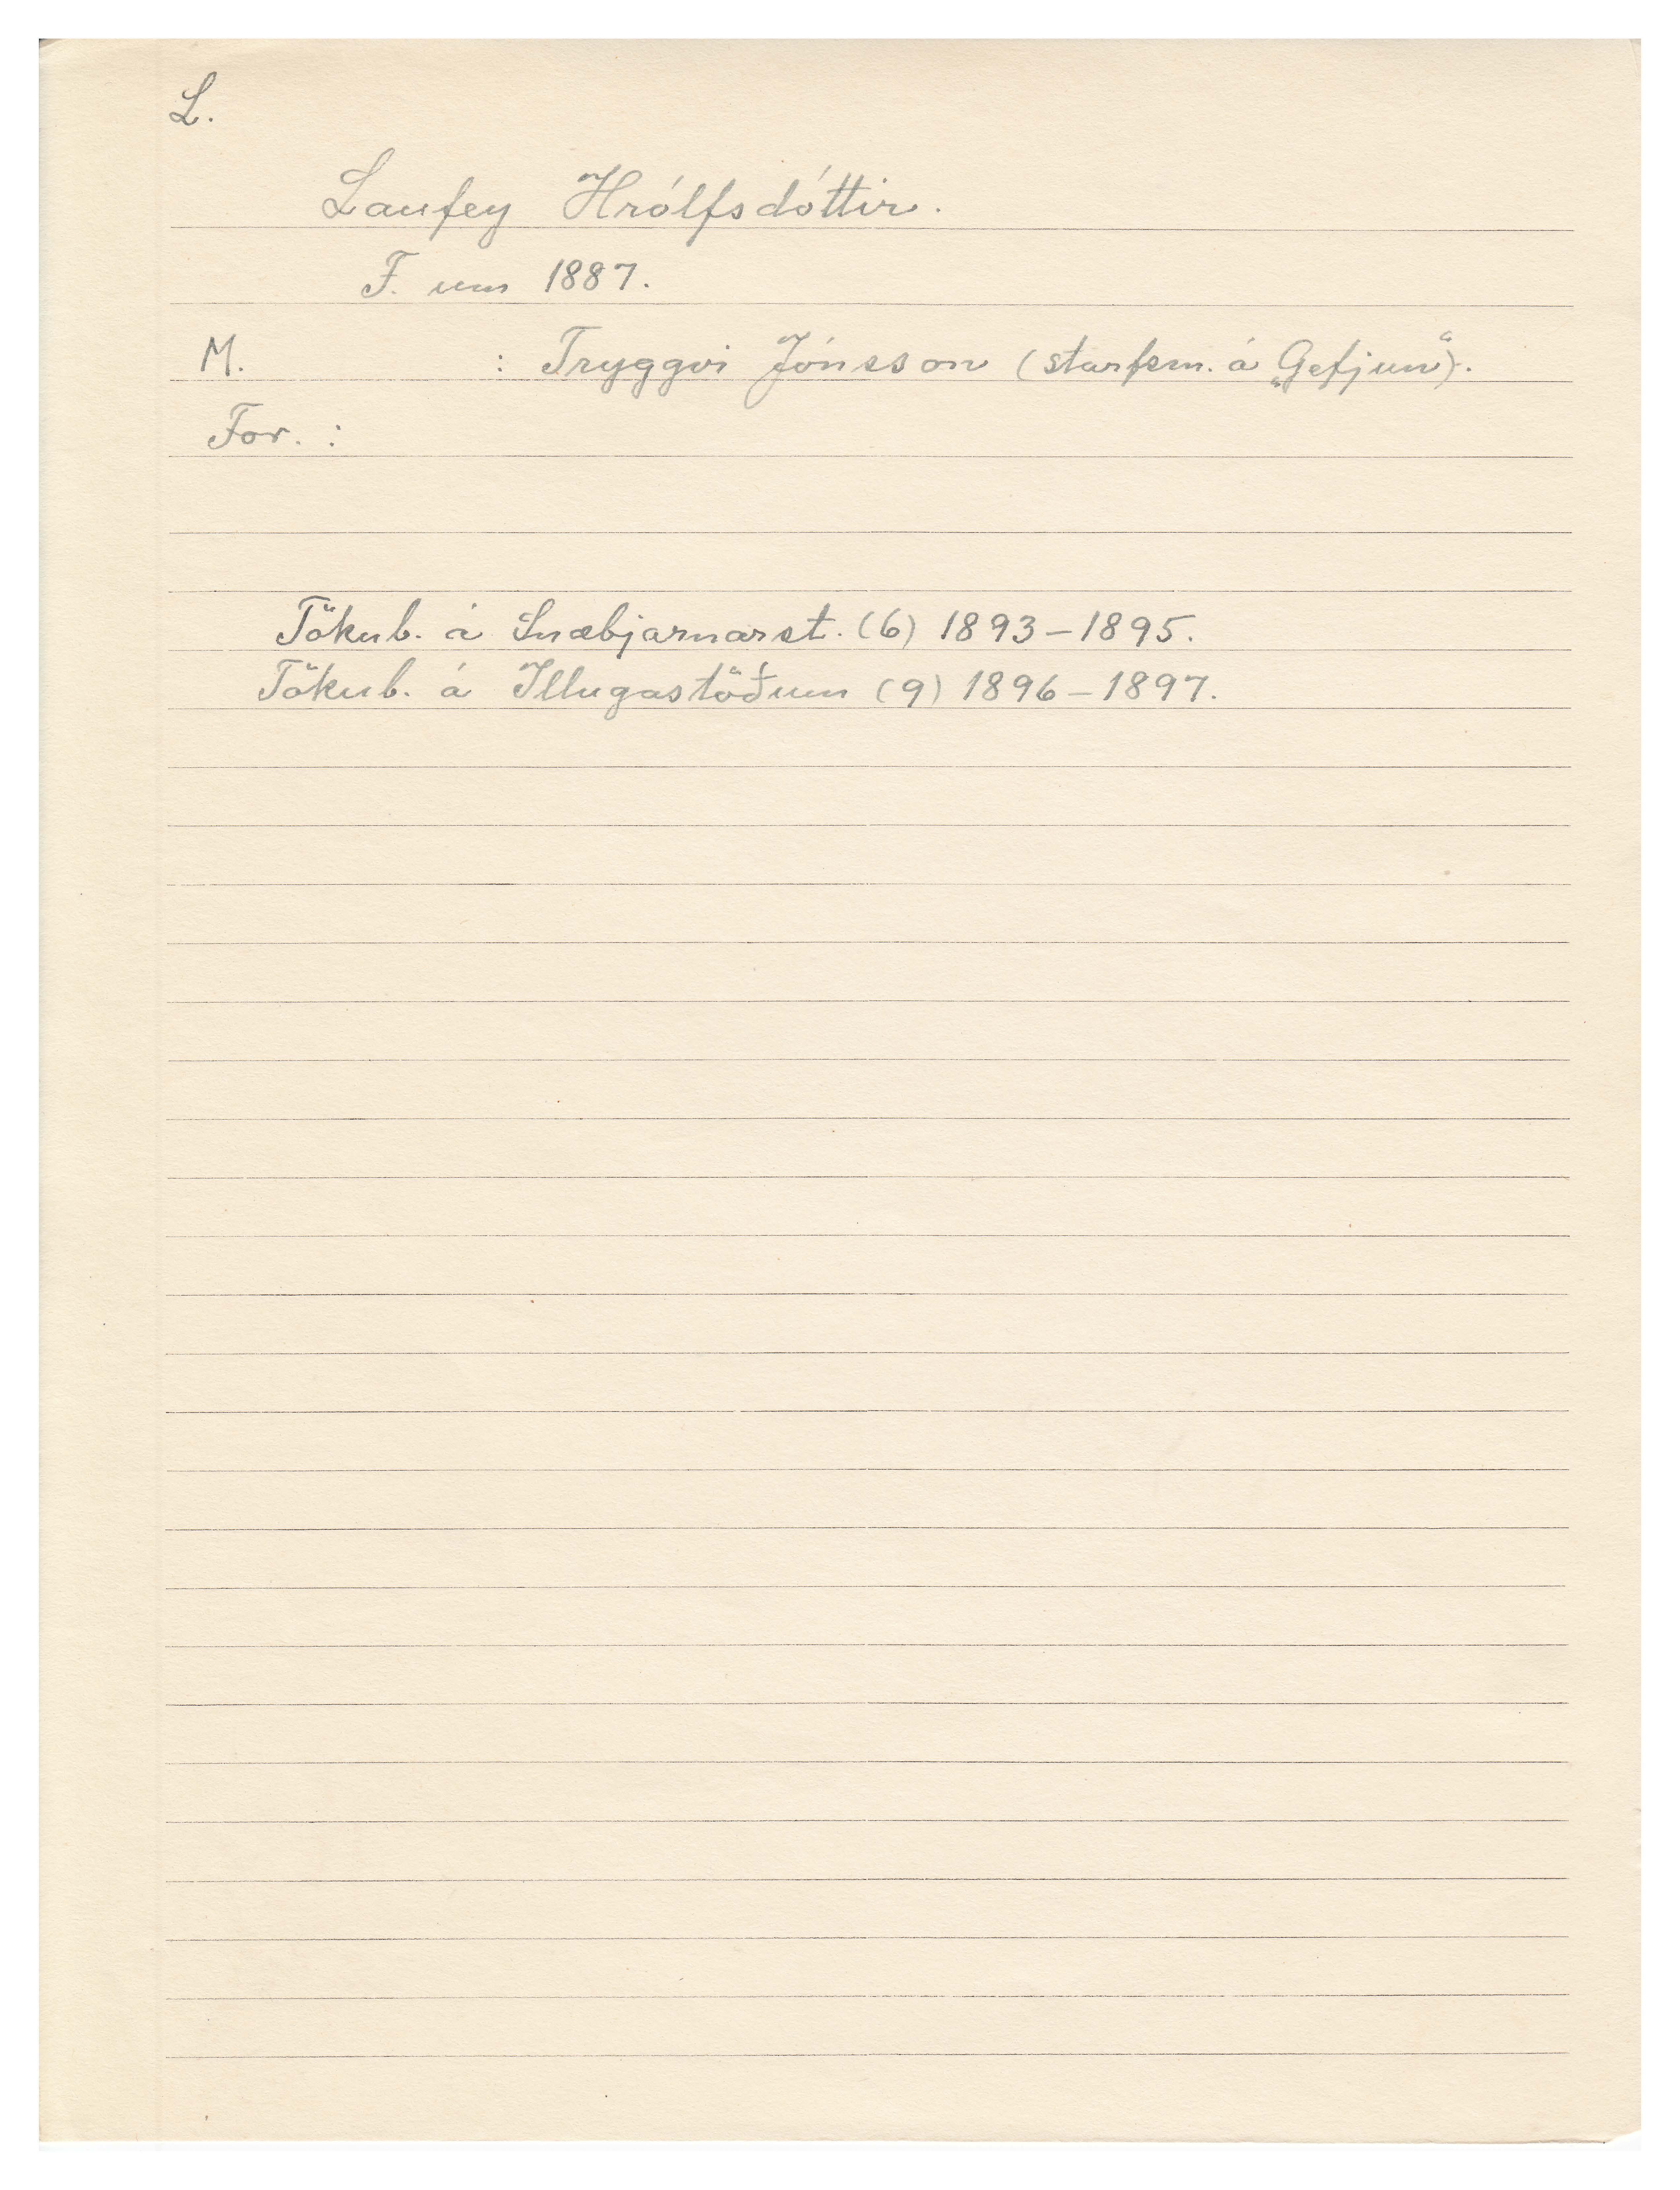 L.
Laufey Hrólfsdóttir.
F. um 1887.
M. : Tryggvi Jónsson (starfsm. á „Gefjun“).
For. :
Tökub. á Snæbjarnarst. (6) 1893-1895.
Tökub. á Illugastöðum (9) 1896-1897.